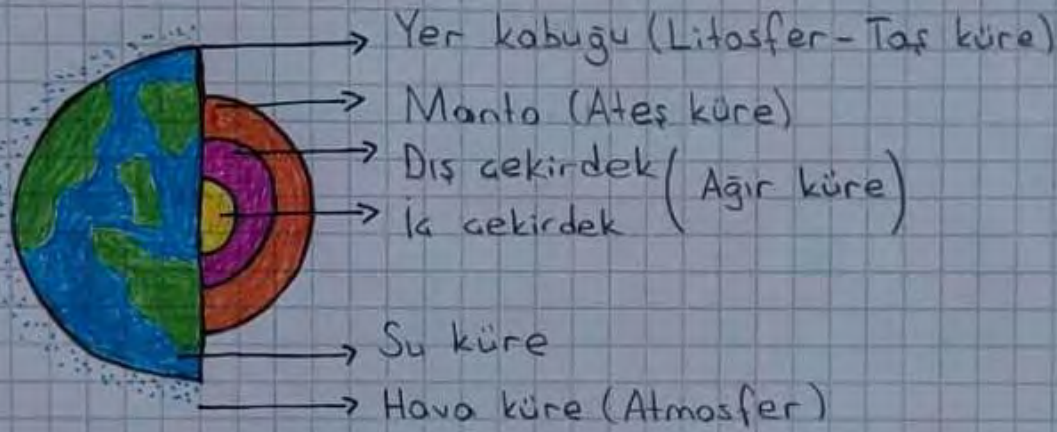 Yer kabuğu (Litosfer - Taş küre)
Manto (Ateş küre)
Dış çekirdek (Ağır küre)
İç çekirdek
Su küre
Hava küre (Atmosfer)